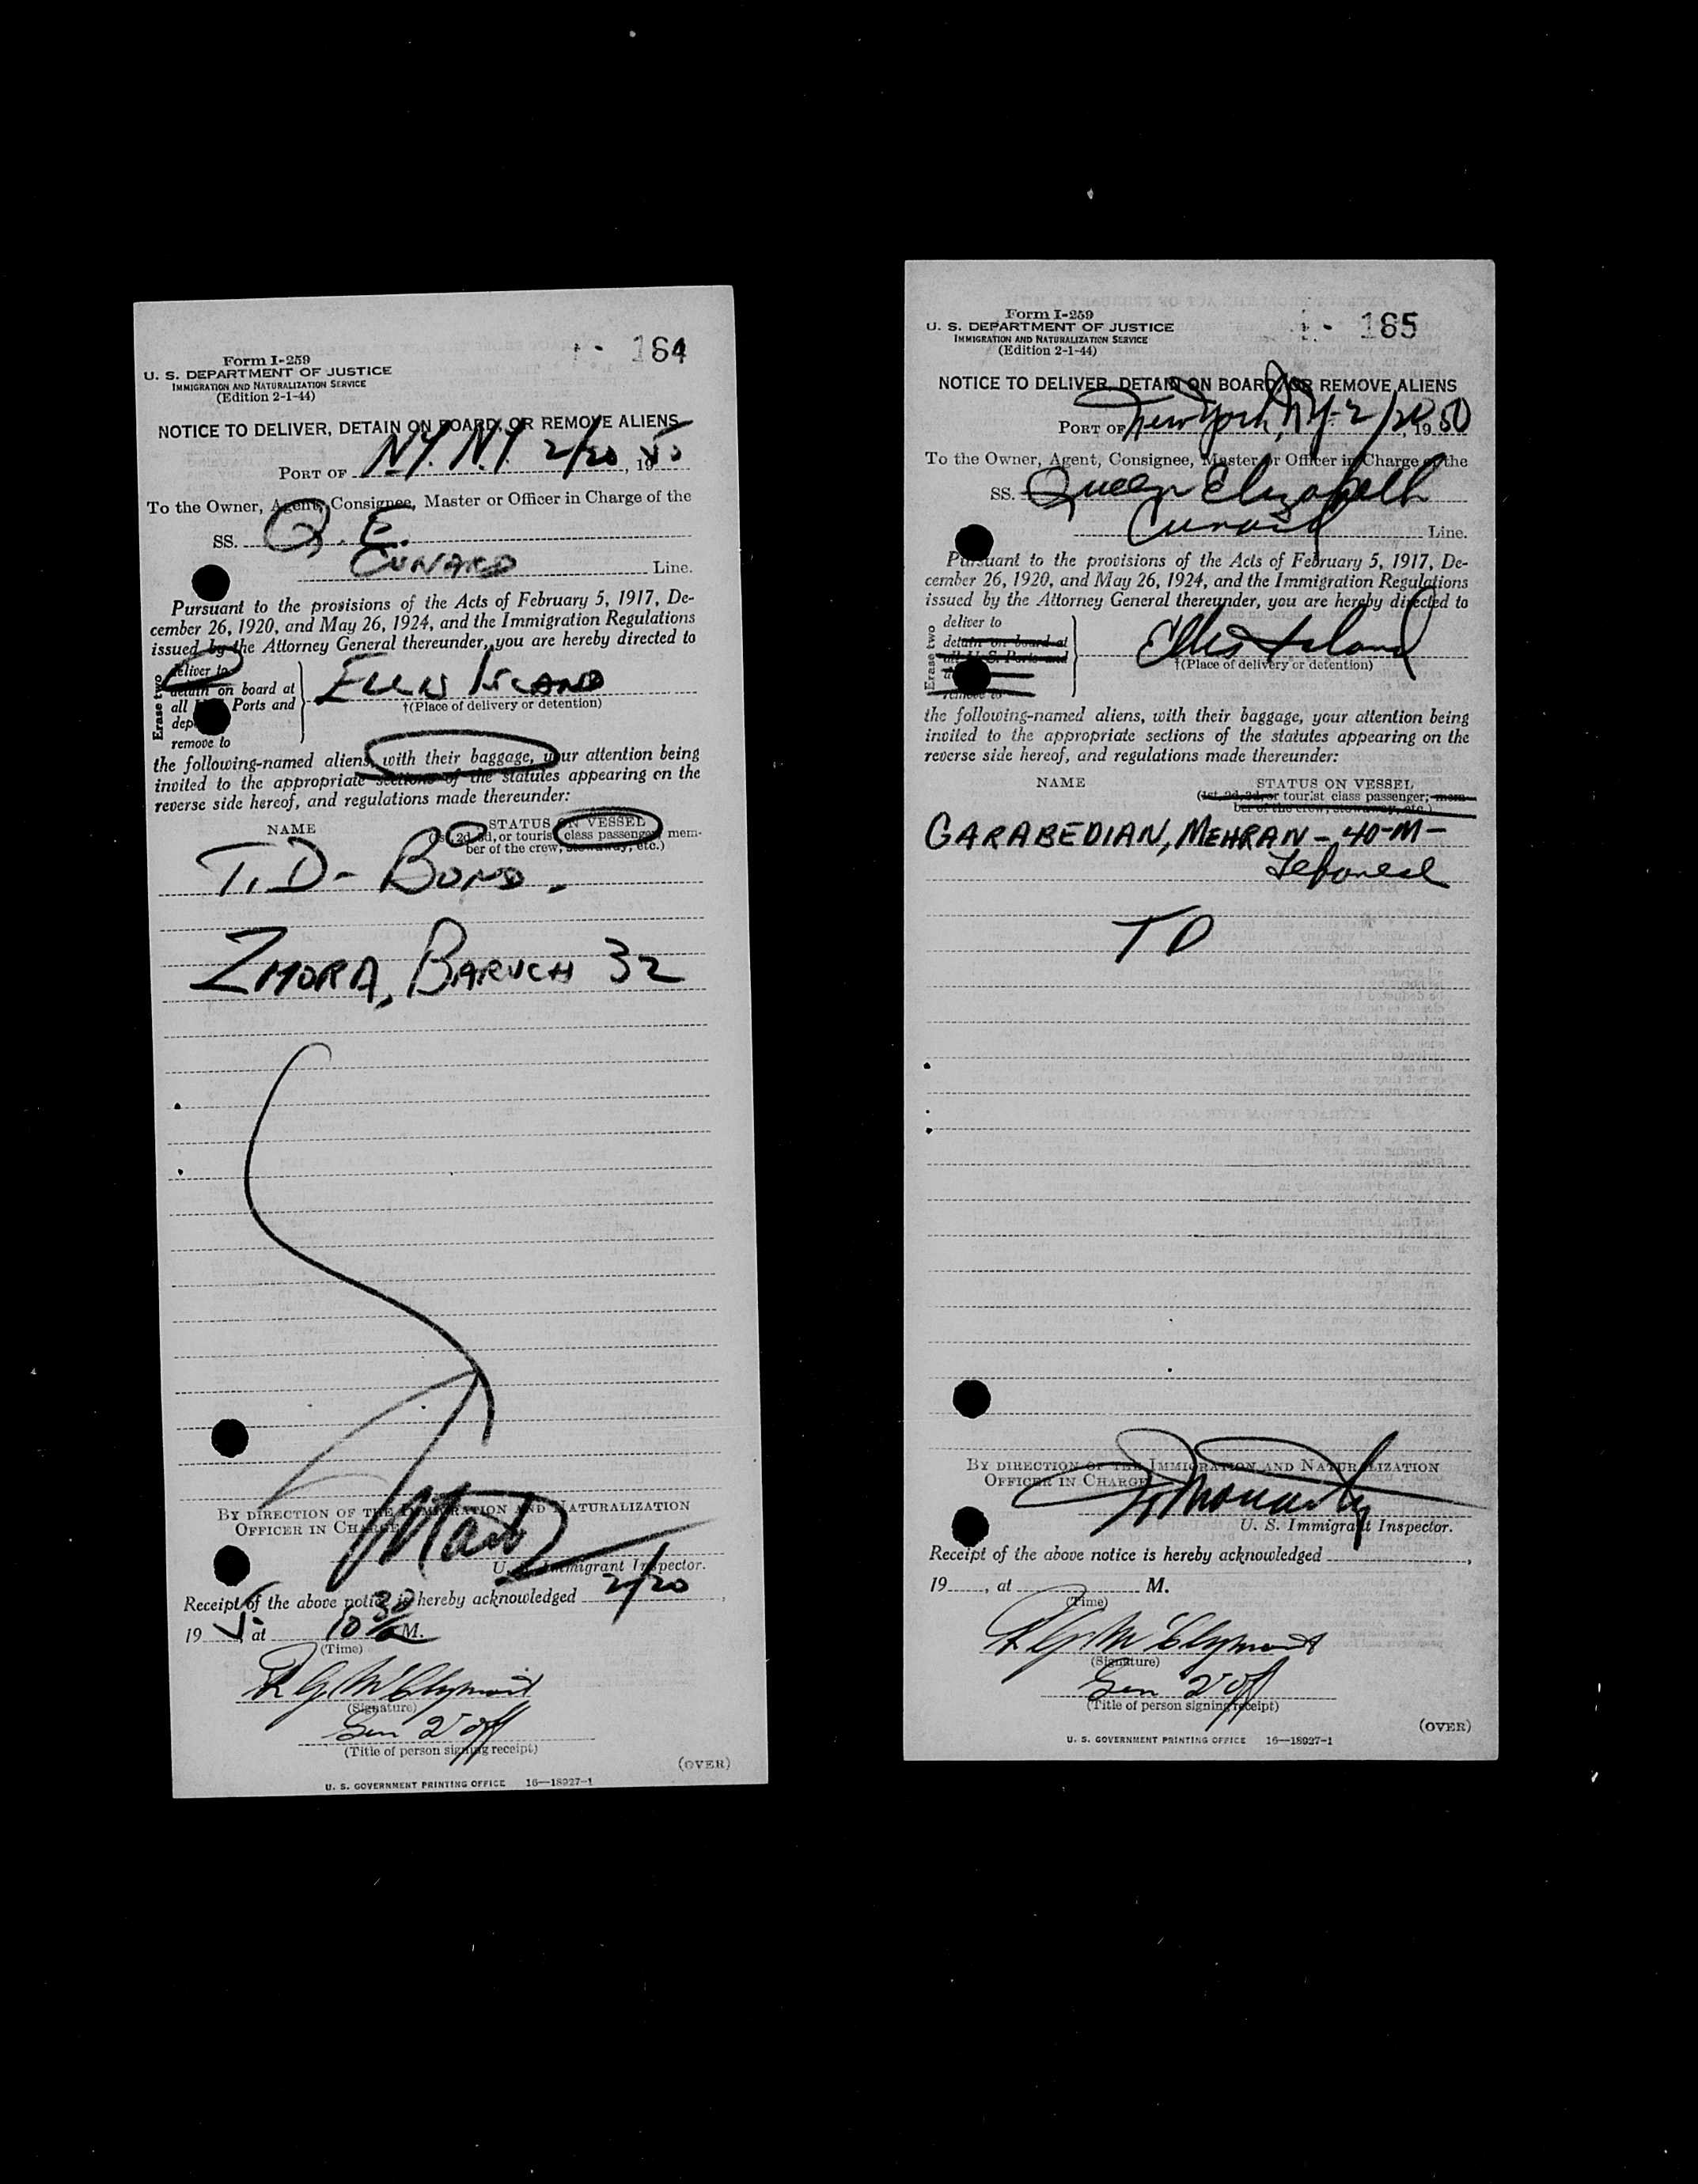 164
Form I-259
U. S. DEPARTMENT OF JUSTICE
IMMIGRATION AND NATURALIZATION SERVICE
(Edition 2-1-44)
NOTICE TO DELIVER, DETAIN ON BOARD, OR REMOVE ALIENS
PORT OF N.Y. N.Y 2/20, 1950
To the Owner, Agent, Consignee, Master or Officer in Charge of the
SS. Q. E.
CUNARD Line.
Pursuant to the provisions of the Acts of February 5, 1917, De-
cember 26, 1920, and May 26, 1924, and the Immigration Regulations
issued by the Attorney General thereunder, you are hereby directed to
Erase two
deliver to
detain on board at
all Ports and
dep
remove to
ELLIS ISLAND
†(Place of delivery or detention)
the following-named aliens, with their baggage, your attention being
invited to the appropriate sections of the statutes appearing on the
reverse side hereof, and regulations made thereunder:
NAME
STATUS ON VESSEL
2d, 3d, or tourist class passenger, mem-
ber of the crew, stowaway, etc.)
T.D - BOND.
ZMORA, BARUCH 32
BY DIRECTION OF THE IMMIGRATION AND NATURALIZATION
OFFICER IN CHARGE
U. S. Immigrant Inspector.
Receipt of the above notice is hereby acknowledged 2/20,
19 , at 10 30 M.
(Time)
(Signature)
(Title of person signing receipt)
(OVER)
U. S. GOVERNMENT PRINTING OFFICE 16—18927-1
165
Form I-259
U. S. DEPARTMENT OF JUSTICE
IMMIGRATION AND NATURALIZATION SERVICE
(Edition 2-1-44)
NOTICE TO DELIVER, DETAIN ON BOARD, OR REMOVE ALIENS
PORT OF New York, N.Y. 2/20, 1950
To the Owner, Agent, Consignee, Master or Officer in Charge of the
SS. Queen Elizabeth
Cunard Line.
Pursuant to the provisions of the Acts of February 5, 1917, De-
cember 26, 1920, and May 26, 1924, and the Immigration Regulations
issued by the Attorney General thereunder, you are hereby directed to
Erase two
deliver to
detain on board at
all U. S. Ports and
remove to
Ellis Island
†(Place of delivery or detention)
the following-named aliens, with their baggage, your attention being
invited to the appropriate sections of the statutes appearing on the
reverse side hereof, and regulations made thereunder:
NAME
STATUS ON VESSEL
(1st, 2d, 3d, or tourist class passenger; mem-
ber of the crew, stowaway, etc.)
GARABEDIAN, MEHRAN - 40-M-
Lebanese
TD
BY DIRECTION OF THE IMMIGRATION AND NATURALIZATION
OFFICER IN CHARGE
U. S. Immigrant Inspector.
Receipt of the above notice is hereby acknowledged ,
19 , at M.
(Time)
(Signature)
(Title of person signing receipt)
(OVER)
U. S. GOVERNMENT PRINTING OFFICE 16—18927-1